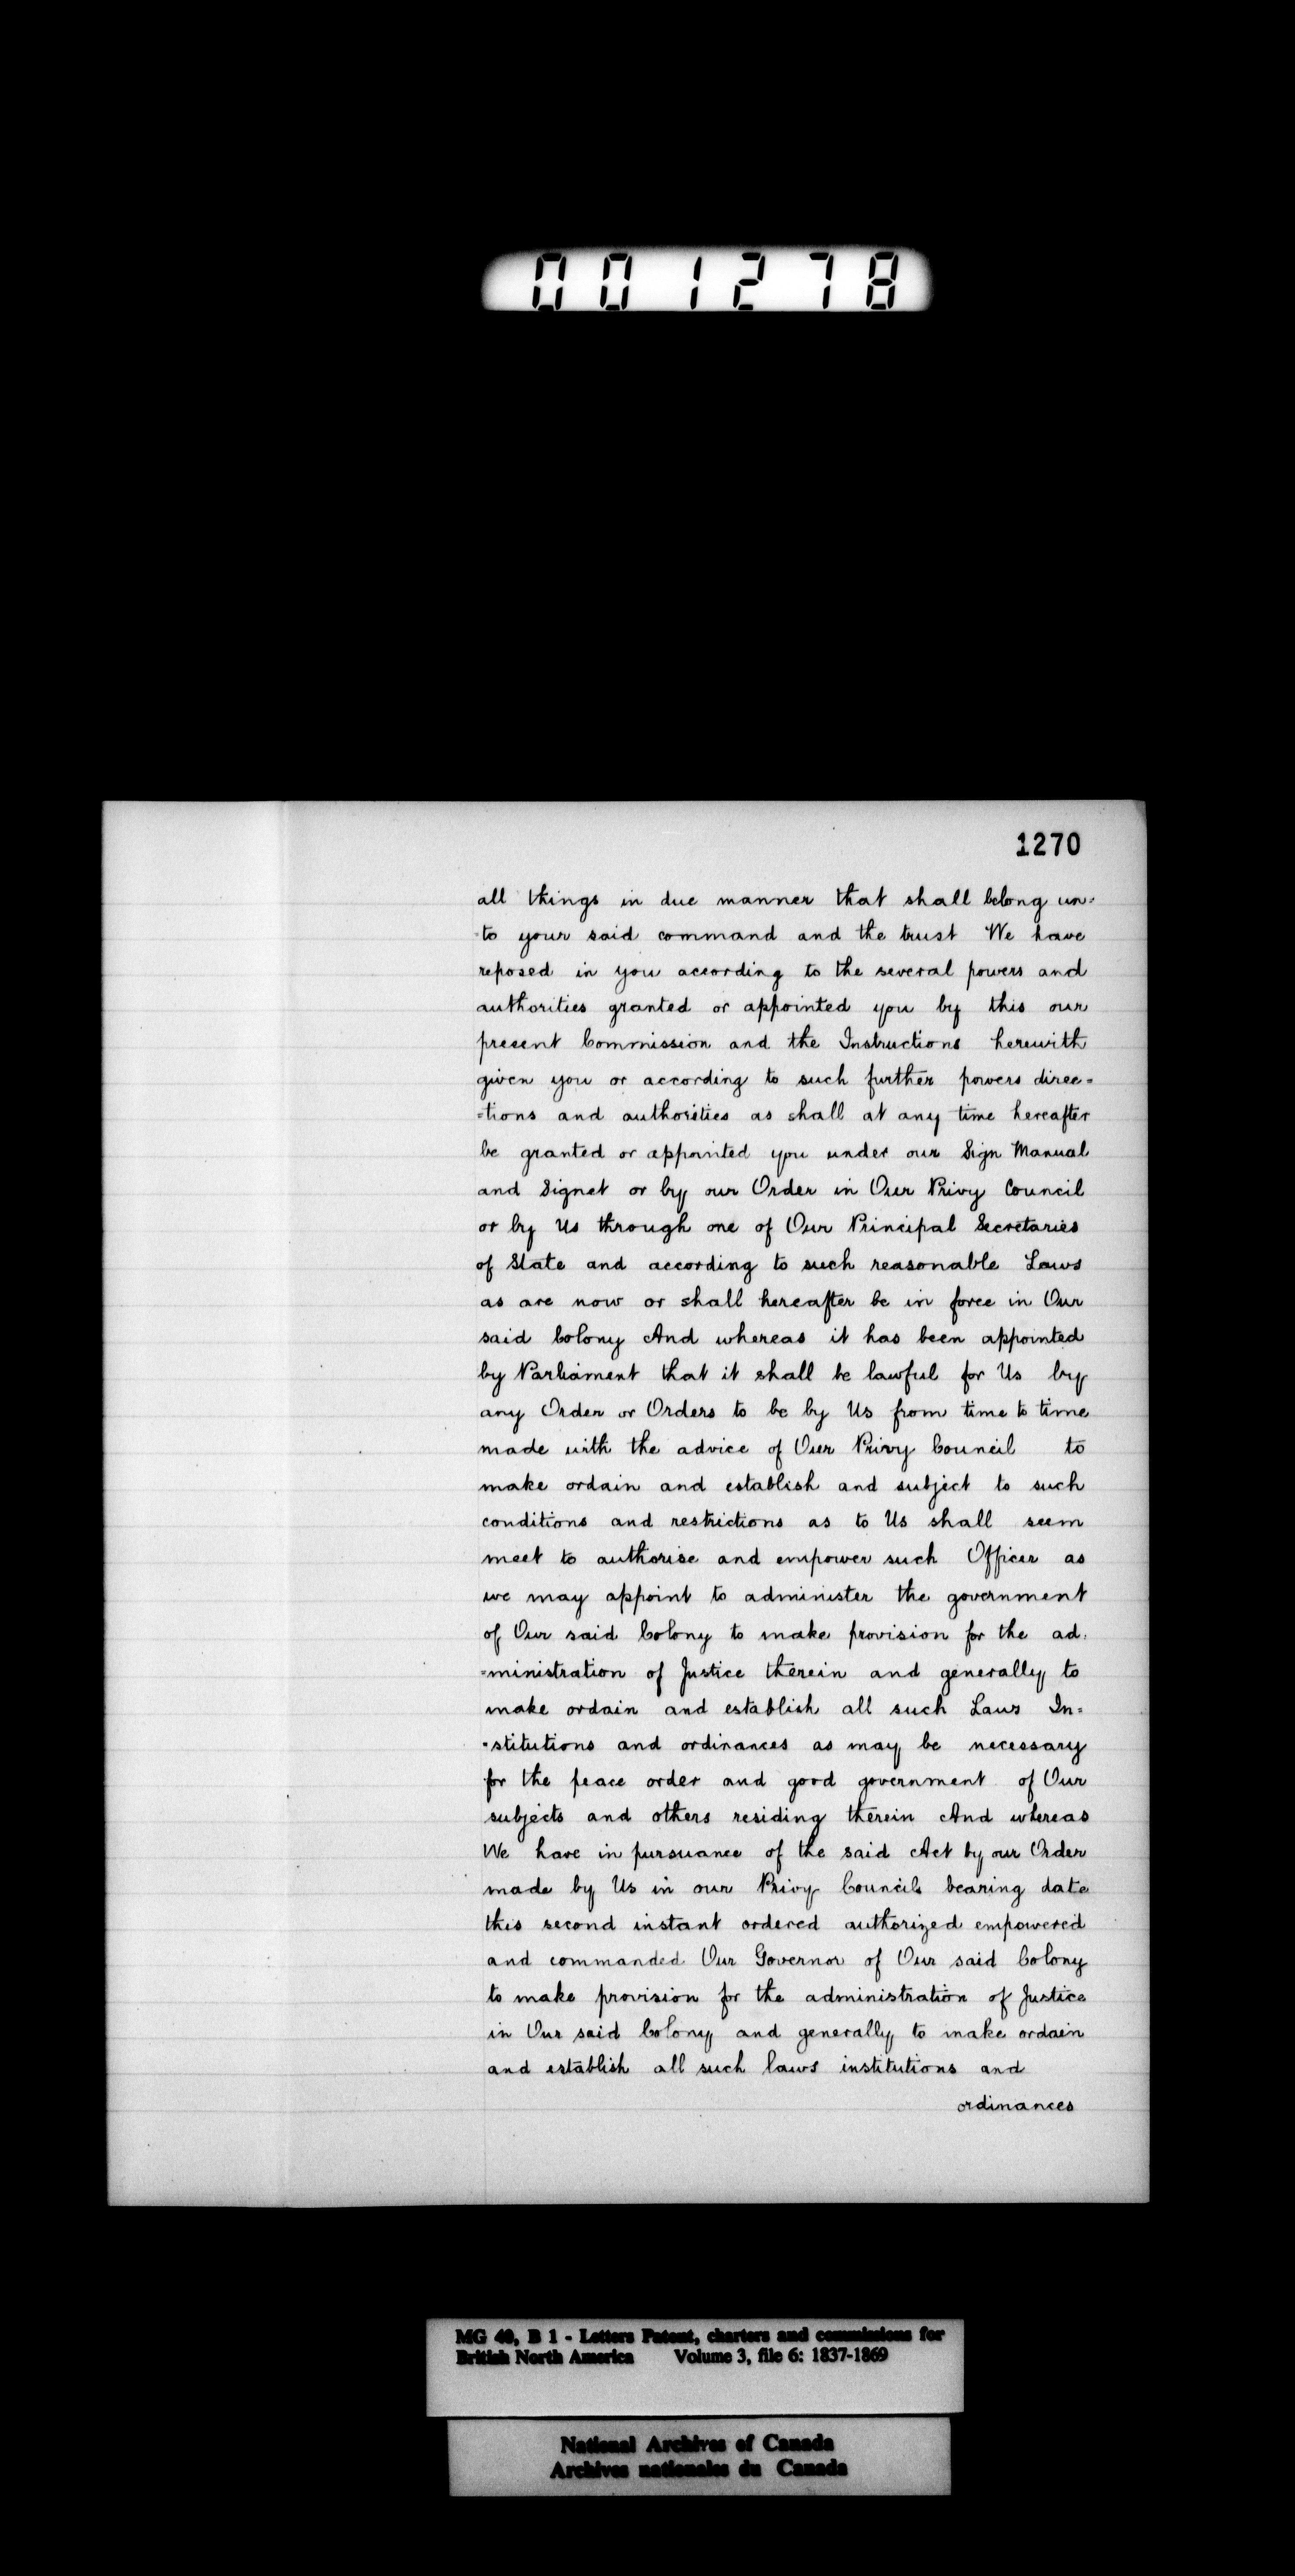 001278
1270
all things in due manner that shall belong un=
=to your said command and the trust We have
reposed in you according to the several powers and
authorities granted or appointed you by this our
present Commission and the Instructions herewith
given you or according to such further powers direc=
=tions and authorities as shall at any time hereafter
be granted or appointed you under our Sign Manual
and Signet or by our Order in Our Privy Council
or by Us through one of Our Principal Secretaries
of State and according to such reasonable Laws
as are now or shall hereafter be in force in Our
said Colony And whereas it has been appointed
by Parliament that it shall be lawful for Us by
any Order or Orders to be by Us from time to time
made with the advice of Our Privy Council to
make ordain and establish and subject to such
conditions and restrictions as to Us shall seem
meet to authorise and empower such Officer as
we may appoint to administer the government
of Our said Colony to make provision for the ad=
=ministration of Justice therein and generally to
make ordain and establish all such Laws In=
=stitutions and ordinances as may be necessary
for the peace order and good government of Our
subjects and others residing therein And whereas
We have in pursuance of the said Act by our Order
made by Us in our Privy Council bearing date
this second instant ordered authorized empowered
and commanded Our Governor of Our said Colony
to make provision for the administration of Justice
in Our said Colony and generally to make ordain
and establish all such laws institutions and
ordinances
MG 40, B 1 - Letters Patent, charters and commissions for
British North America Volume 3, file 6: 1837-1869
National Archives of Canada
Archives nationales du Canada